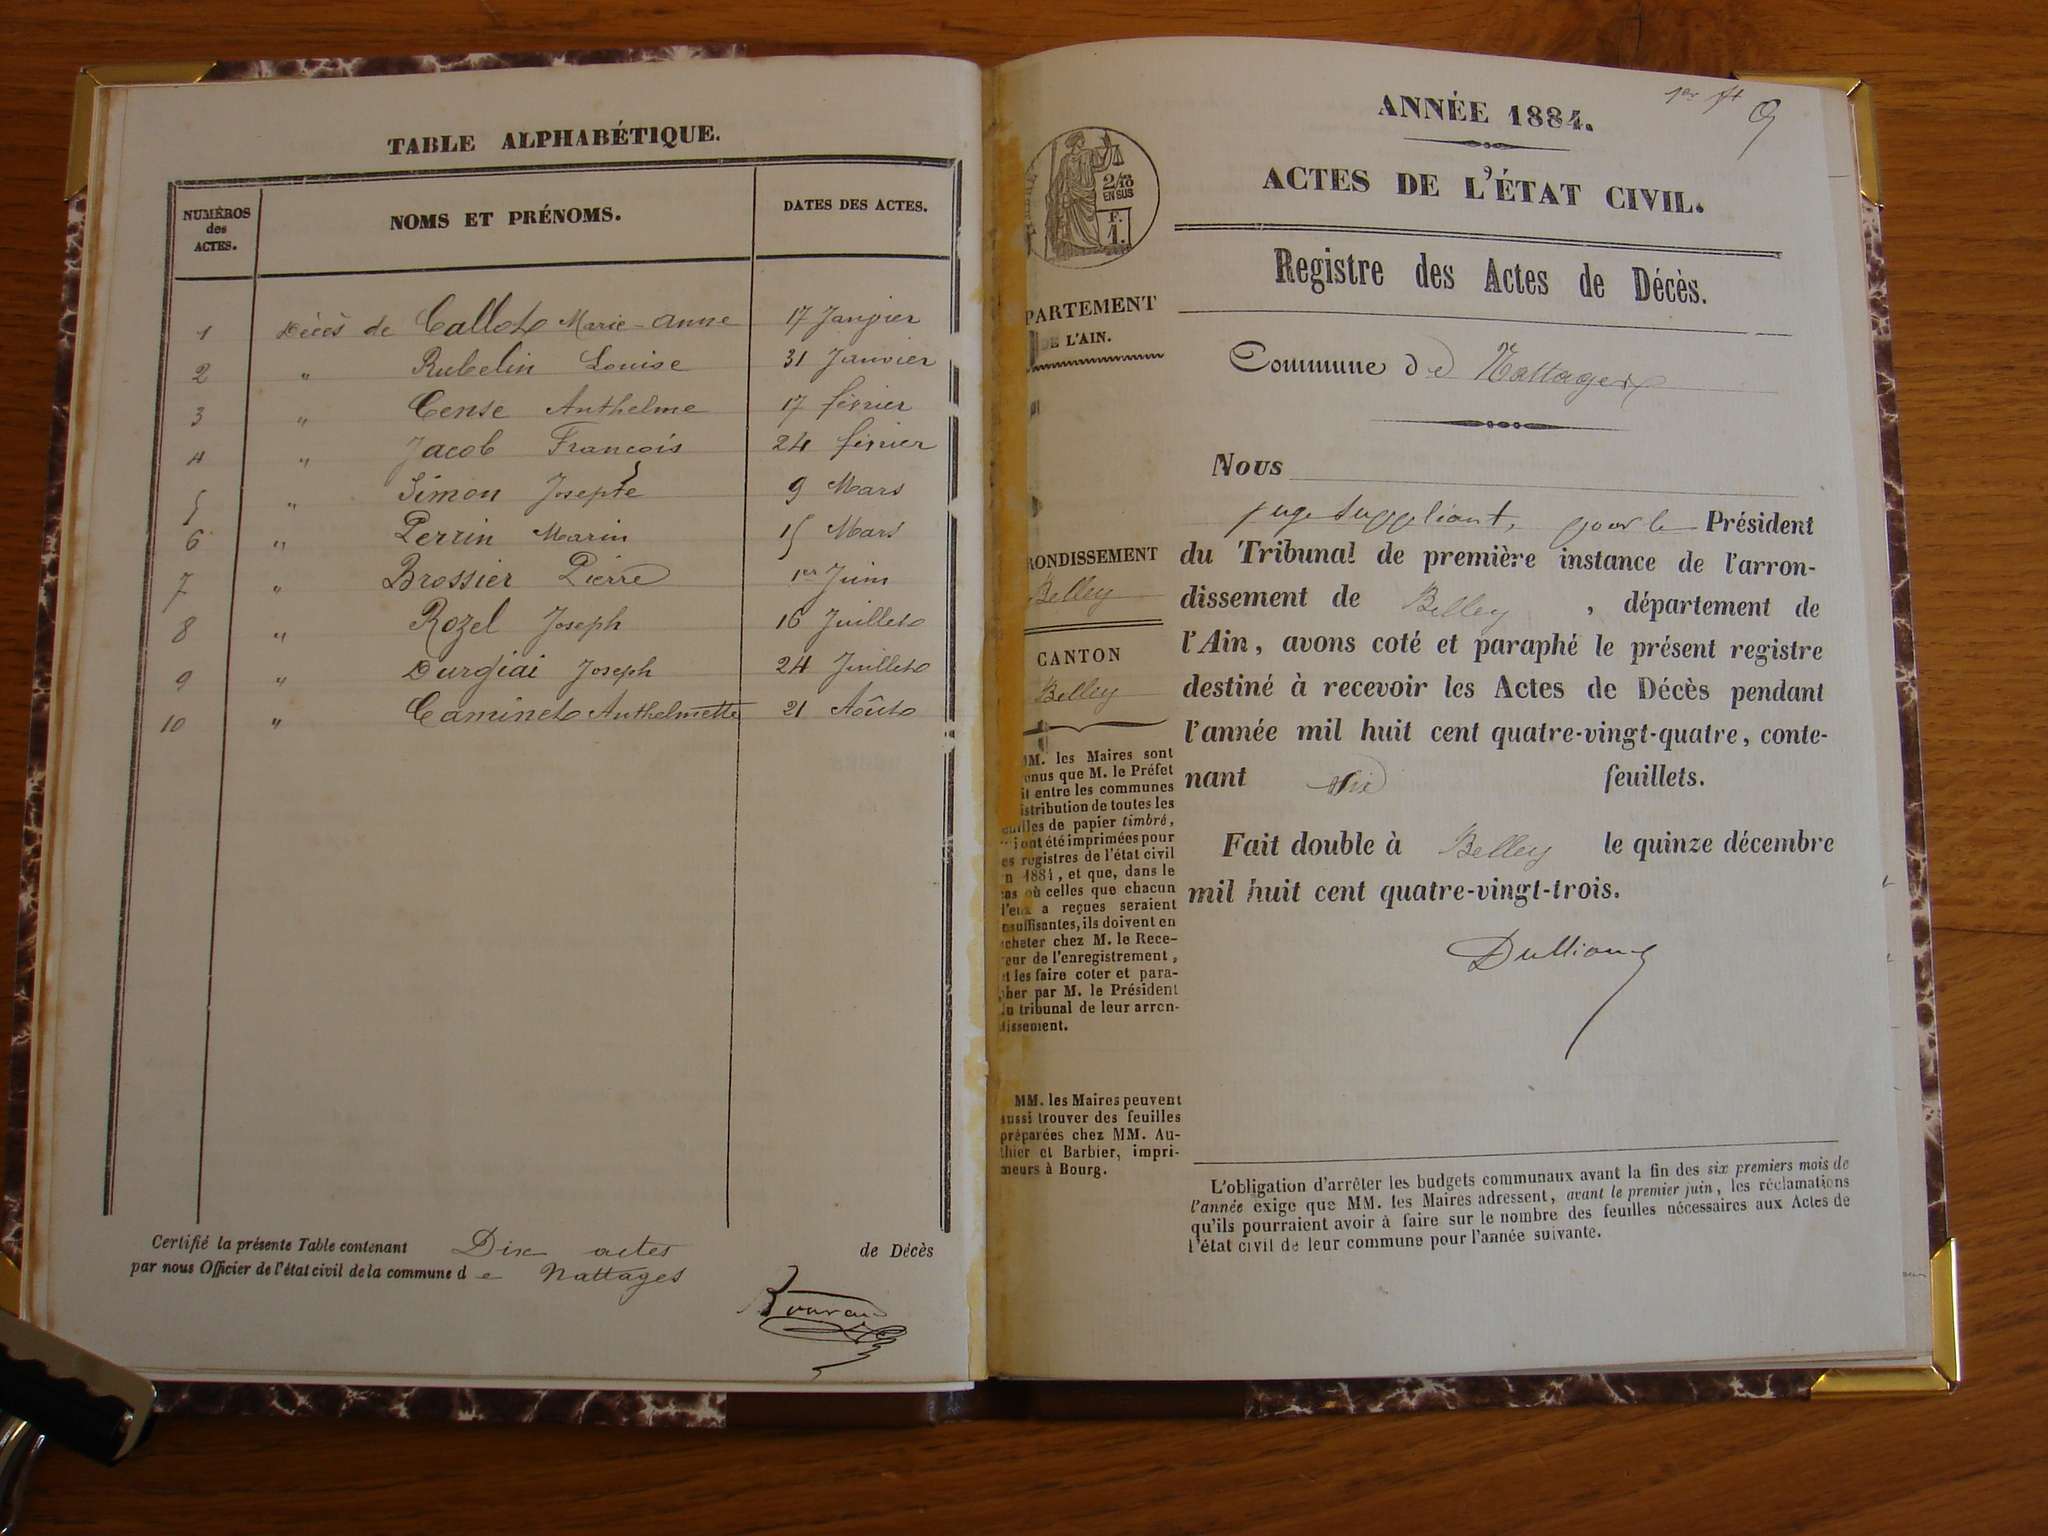 TABLE ALPHABÉTIQUE.
NUMÉROS des ACTES.
NOMS ET PRÉNOMS.
DATES DES ACTES.
1 Décès de Callot Marie-Anne 17 Janvier
2 " Rubelin Louise 31 Janvier
3 " Cense Anthelme 17 février
4 " Jacob François 24 février
5 " Simon Josepte 9 Mars
6 " Perrin Marin 15 Mars
7 " Brossier Pierre 1er Juin
8 " Rozel Joseph 16 Juillet
9 " Durgiai Joseph 24 Juillet
10 " Caminet Anthelmette 21 Août
Certifié la présente Table contenant Dix actes de Décès
par nous Officier de l'état civil de la commune de Nattages
1er ft
ANNÉE 1884.
ACTES DE L'ÉTAT CIVIL.
2/10
EN SUS
F.
1.
Registre des Actes de Décès.
PARTEMENT
DE L'AIN.
Commune de Nattages
Nous
juge suppléant, pour le Président
du Tribunal de première instance de l'arron-
dissement de Belley, département de
l'Ain, avons coté et paraphé le présent registre
destiné à recevoir les Actes de Décès pendant
l'année mil huit cent quatre-vingt-quatre, conte-
nant six feuillets.
Fait double à Belley le quinze décembre
mil huit cent quatre-vingt-trois.
RONDISSEMENT
Belley
CANTON
Belley
MM. les Maires sont
enus que M. le Préfet
it entre les communes
istribution de toutes les
euilles de papier timbré,
i ont été imprimées pour
es registres de l'état civil
n 1884, et que, dans le
cas où celles que chacun
d'eux a reçues seraient
nsuffisantes, ils doivent en
cheter chez M. le Rece-
eur de l'enregistrement,
t les faire coter et para-
pher par M. le Président
du tribunal de leur arron-
dissement.
MM. les Maires peuvent
aussi trouver des feuilles
préparées chez MM. Au-
thier et Barbier, impri-
meurs à Bourg.
L'obligation d'arrêter les budgets communaux avant la fin des six premiers mois de
l'année exige que MM. les Maires adressent, avant le premier juin, les réclamations
qu'ils pourraient avoir à faire sur le nombre des feuilles nécessaires aux Actes de
l'état civil de leur commune pour l'année suivante.